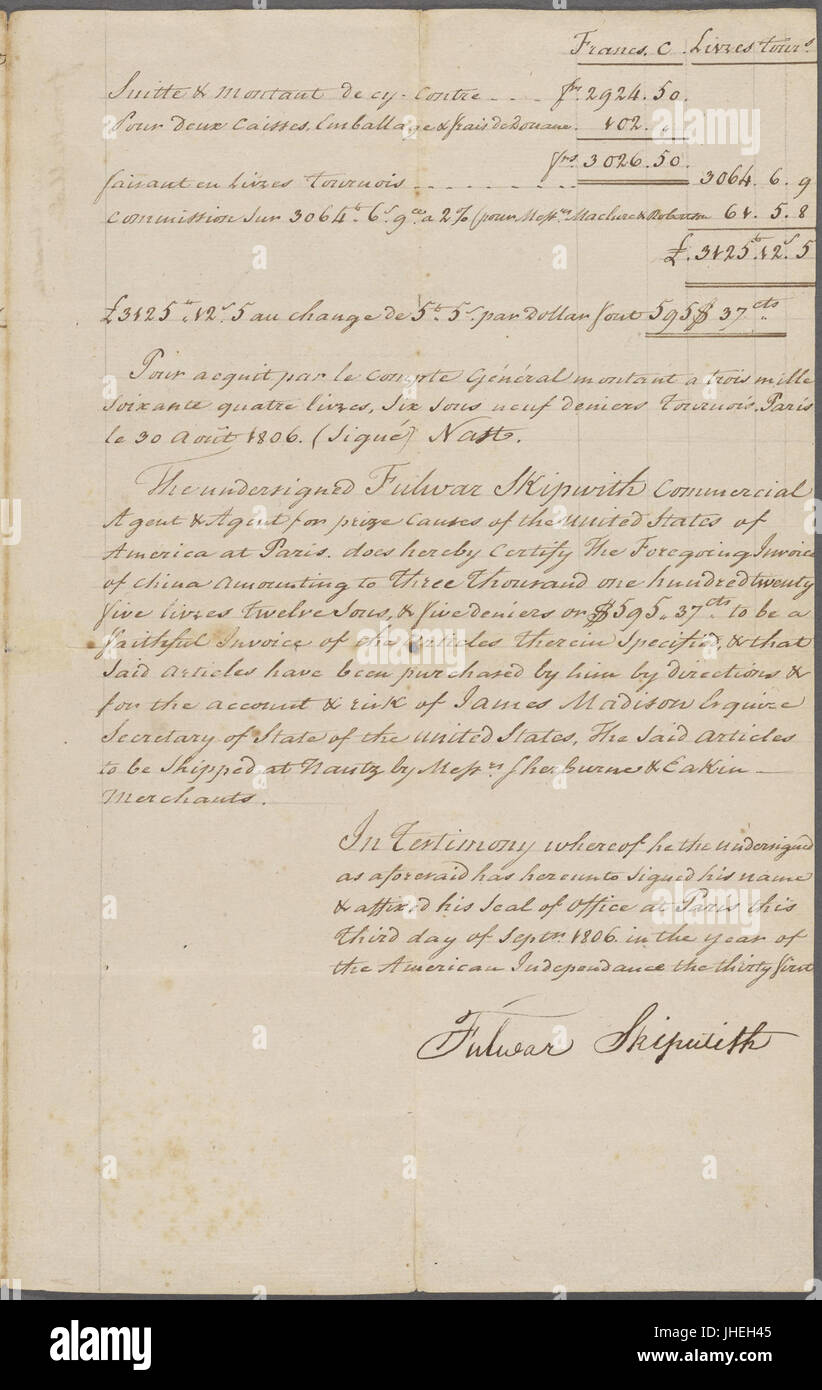 Francs. C. Livres tour.s
Suitte & montant de cy-contre .... fr. 2924.50.
Pour deux Caisses, Emballage & frais de Douane. 102. „
frs. 3026.50.
faisant en Livres Tournois .......... 3064. 6. 9
Commission Sur 3064.tt 6.s 9.den a 2% (pour Mess.rs Maclure & Robertson 61. 5. 8
£. 3125.tt 12.s 5
£3125.tt 12.s 5 au change de 5.tt 5.s par Dollar font 595$ 37 cts.
Pour acquit par le Compte Général montant a trois mille
Soixante quatre livres, Six Sous neuf deniers Tournois. Paris
le 30 Août 1806. (Signé) Nast.
The undersigned Fulwar Skipwith Commercial
Agent & Agent for prize Causes of the United States of
America at Paris. does hereby Certify The Foregoing Invoice
of China Amounting to Three Thousand one hundred twenty
five livres Twelve Sous, & five deniers or $595.37 cts. to be a
faithful Invoice of the articles therein Specified, & that
Said Articles have been purchased by him by directions &
for the account & risk of James Madison Esquire
Secretary of State of the United States, The Said Articles
to be Shipped at Nantz by Mess.rs Sherburne & Eakin —
Merchants.
In Testimony whereof he the undersigned
as aforesaid has hereunto Signed his name
& affixed his Seal of Office at Paris this
Third day of Septr. 1806. in the year of
the American Independance the thirty first
Fulwar Skipwith
alamy
Image ID: JHEH45
www.alamy.com